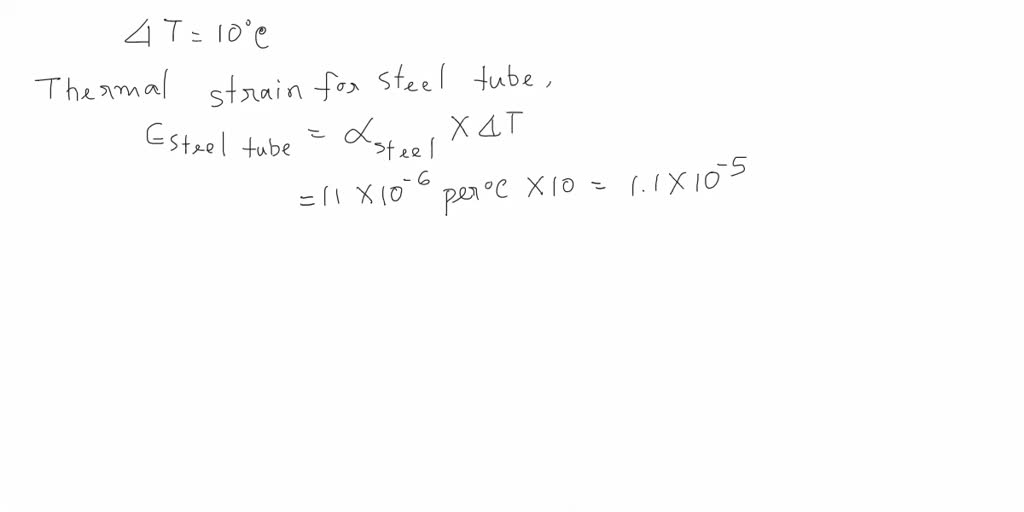 ΔT = 10°C
Thermal strain for steel tube,
Esteel tube = αsteel X ΔT
= 11 X 10^-6 per°C X 10 = 1.1 X 10^-5